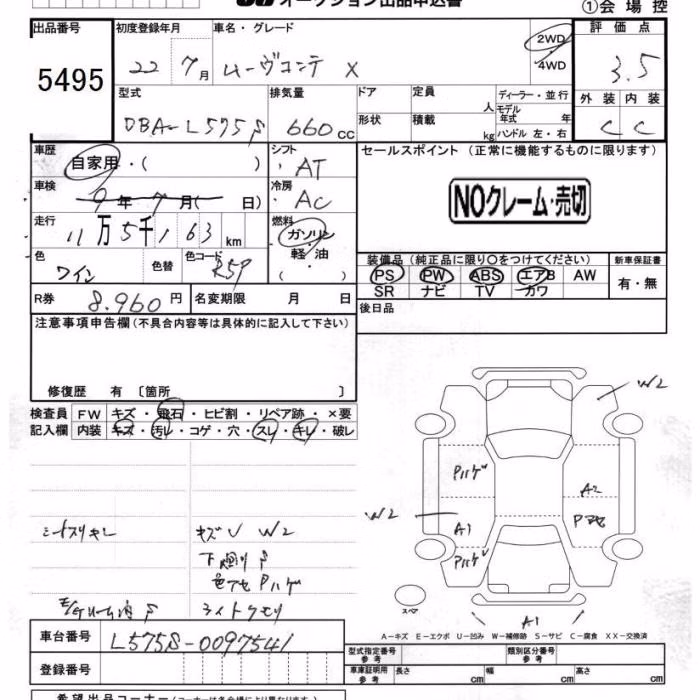 オークション出品申込書
①会 場 控
出品番号 5495
初度登録年月 22 7月
車名・グレード ムーヴコンテ X
2WD
4WD
評 価 点 3.5
外 装 内 装
C C
型式 DBA-L575S
排気量 660cc
ドア
形状
定員 人
積載 kg
ディーラー・並行
モデル年式 年
ハンドル 左・右
車歴 自家用・( )
シフト ・AT
セールスポイント (正常に機能するものに限ります)
車検 9年7月( 日)
冷房 ・AC
NOクレーム・売切
走行 11万5千163km
燃料 ガソリン・軽油・( )
色 ワイン
色替
色コード R59
装備品 (純正品に限り○をつけてください)
新車保証書
PS PW ABS エアB AW
SR ナビ TV カワ
有・無
R券 8.960円
名変期限 月 日
後日品
注意事項申告欄 (不具合内容等は具体的に記入して下さい)
修復歴 有 〔箇所 〕
検査員 FW キズ・飛石・ヒビ割・リペア跡・×要
記入欄 内装 キズ・汚レ・コゲ・穴・スレ・キレ・破レ
W2
Pハゲ
A2
W2
A1
Pハゲ
キズU W2
下廻りS
色アセPハゲ
ライトクモリ
スペア
A1
A-キズ E-エクボ U-凹み W-補修跡 S-サビ C-腐食 XX-交換済
車台番号 L575S-0097541
型式指定番号 参考
類別区分番号 参考
登録番号
車庫証明用 参考 長さ cm 幅 cm 高さ cm
希望出品コーナー